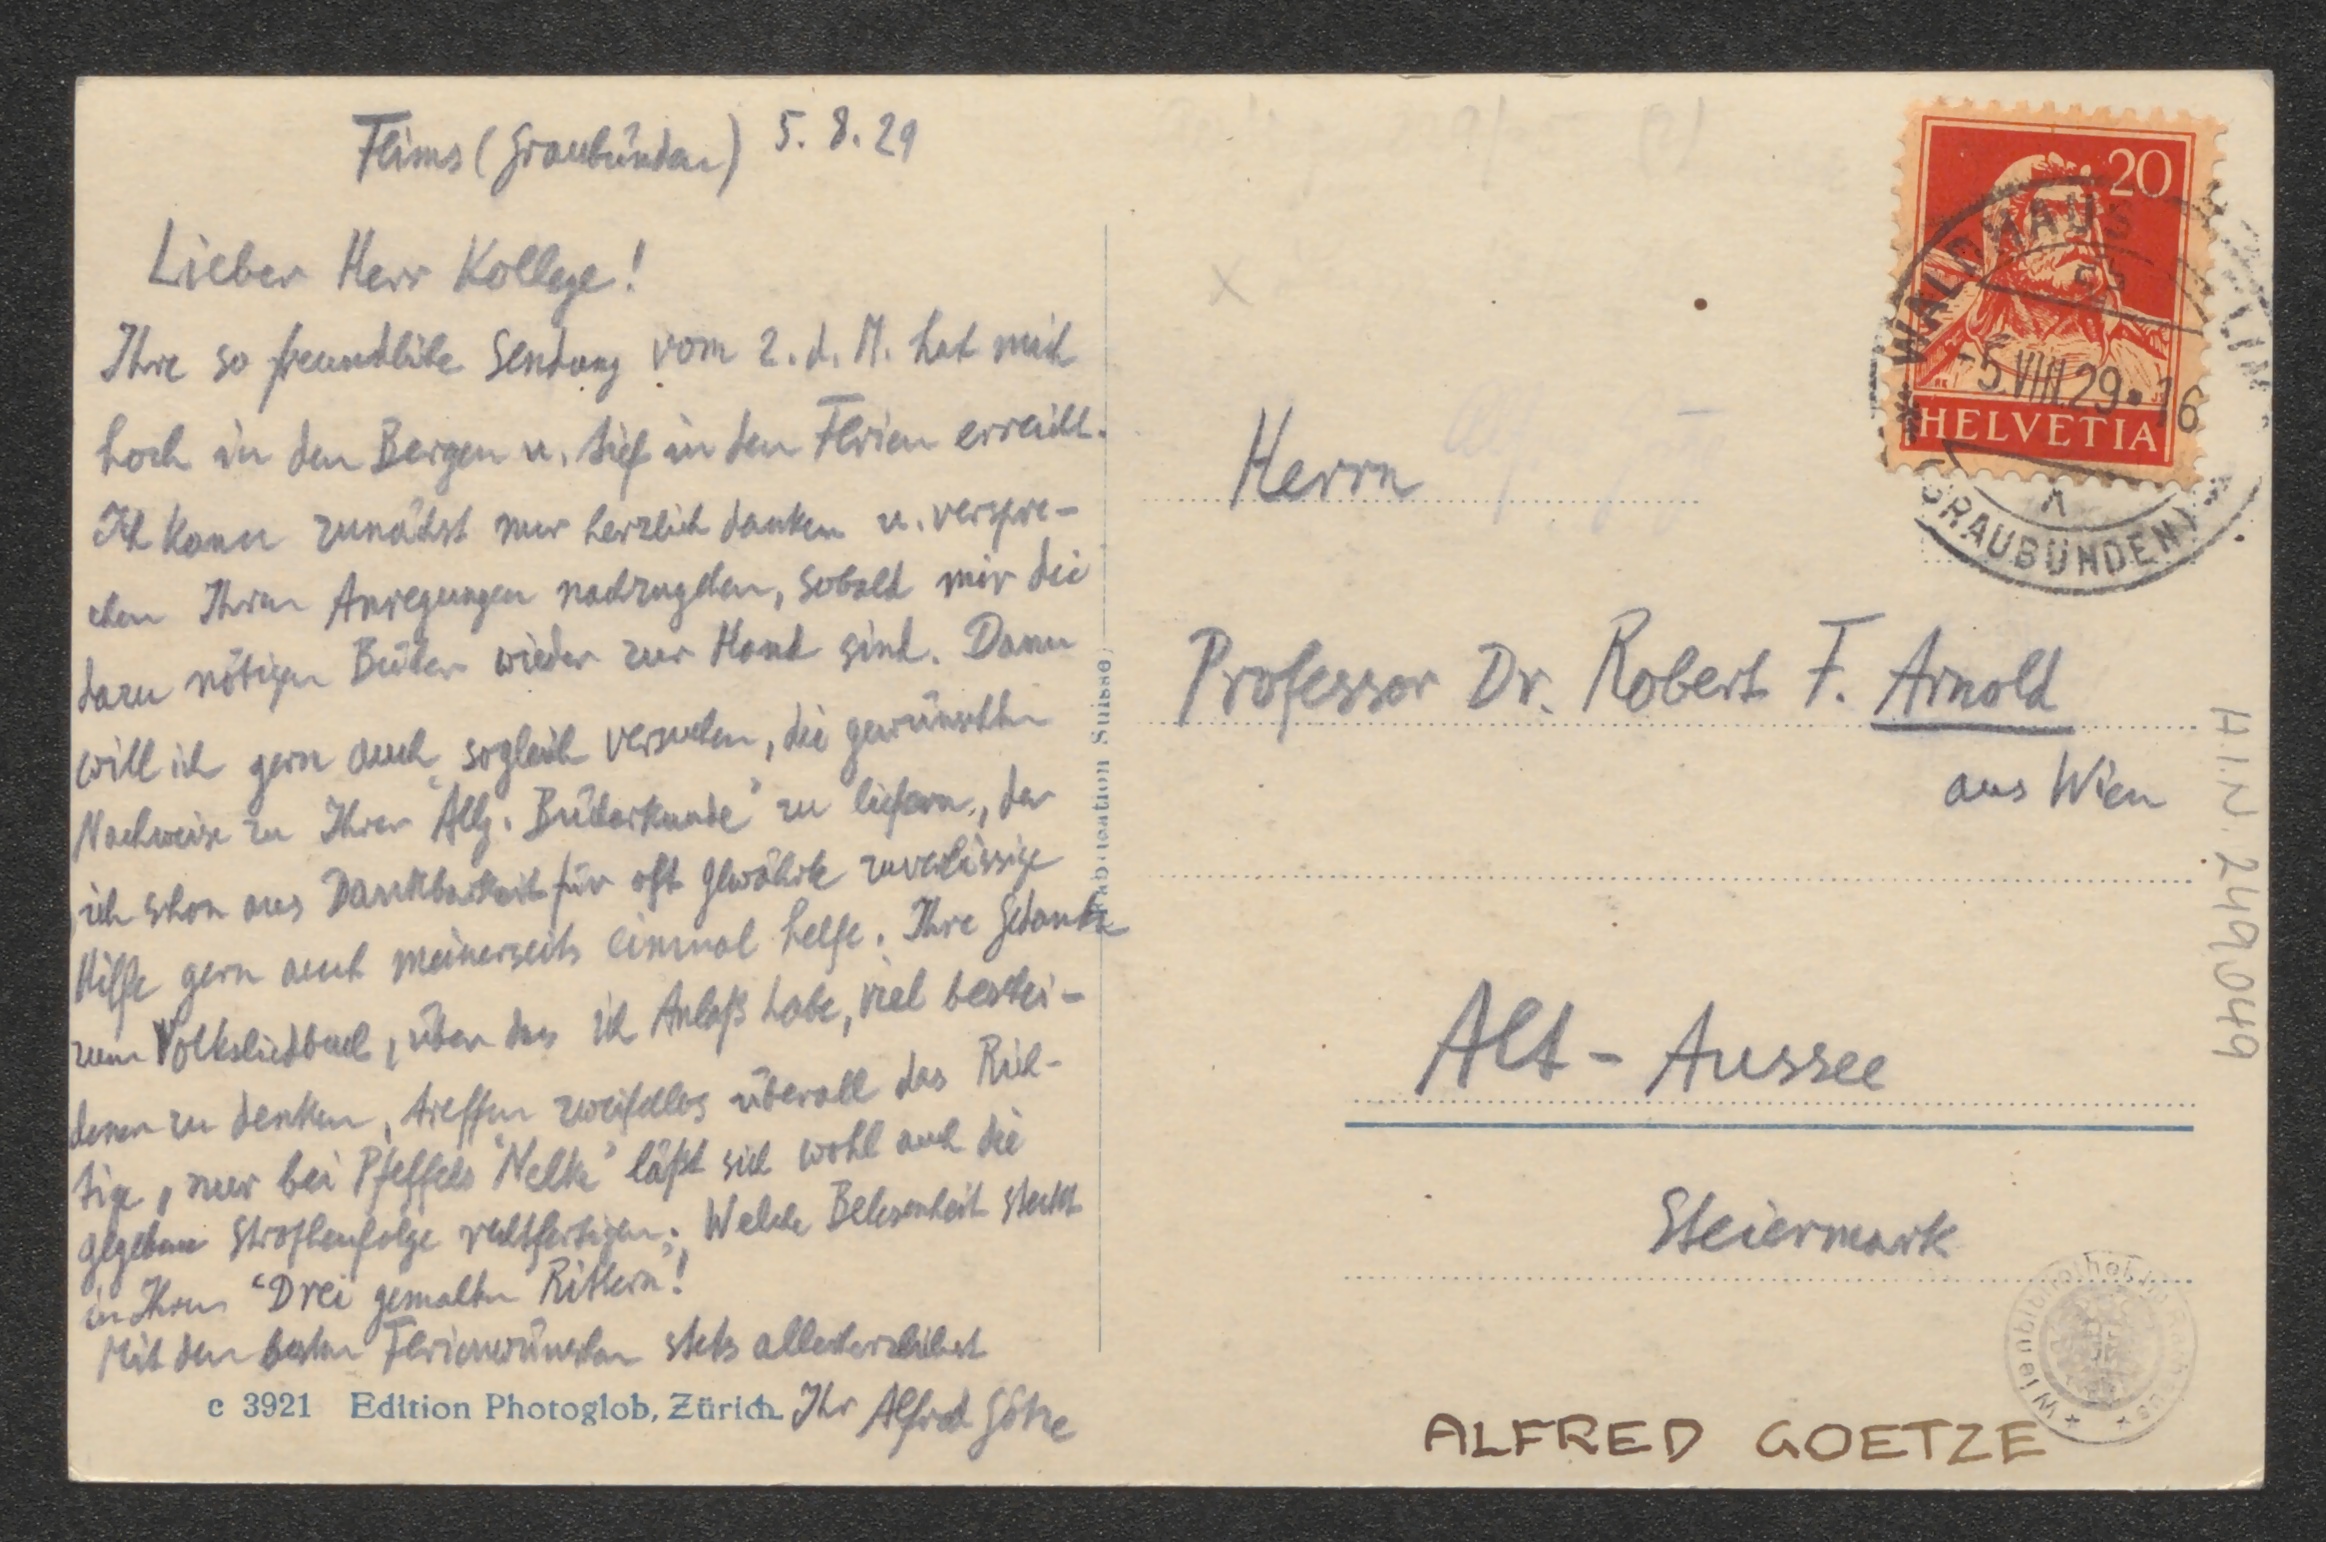 Flims (Graubünden) 5. 8. 29
Lieber Herr Kollege!
Ihre so freundliche Sendung vom 2. d. M. hat mich
hoch in den Bergen u. tief in den Ferien erreicht.
Ich kann zunächst nur herzlich danken u. verspre-
chen Ihren Anregungen nachzugehen, sobald mir die
dazu nötigen Bücher wieder zur Hand sind. Dann
will ich gern auch sogleich versuchen, die gewünschten
Nachweise zu Ihrer "Allg. Bücherkunde" zu liefern, der
ich schon aus Dankbarkeit für oft gewährte zuverlässige
Hilfe gern auch meinerseits einmal helfe. Ihre Gedanken
zum Volksliedbuch, über das ich Anlaß habe, viel beschei-
dener zu denken, treffen zweifellos überall das Rich-
tige, nur bei Pfeffels "Nelke" läßt sich wohl auch die
gegebene Strophenfolge rechtfertigen. Welche Belesenheit steckt
in Ihren "Drei gemalten Rittern"!
Mit den besten Ferienwünschen stets allerherzlichst
Ihr Alfred Götze
c 3921 Edition Photoglob, Zürich
(Fabrication Suisse)
20
HELVETIA
WALDHAUS FLIMS
-5.VIII.29.16
(GRAUBÜNDEN)
x
Herrn
Professor Dr. Robert F. Arnold
aus Wien
Alt-Aussee
Steiermark
H.I.N. 249.049
Wienbibliothek im Rathaus
ALFRED GOETZE